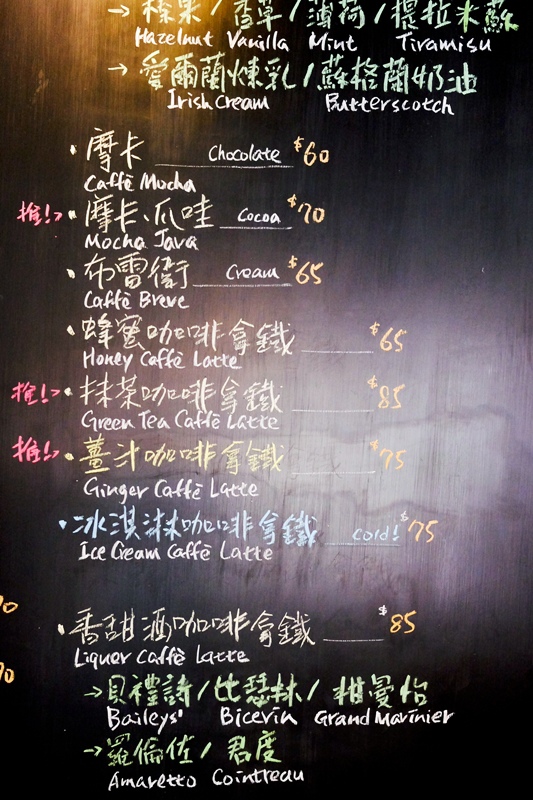 → 榛果/香草/薄荷/提拉米蘇
Hazelnut Vanilla Mint Tiramisu
→ 愛爾蘭煉乳/蘇格蘭奶油
Irish Cream Butterscotch
· 摩卡 Chocolate $60
Caffè Mocha
推!> · 摩卡、爪哇 Cocoa $70
Mocha Java
· 布雷衛 Cream $65
Caffè Breve
· 蜂蜜咖啡拿鐵 $65
Honey Caffè Latte
推!> · 抹茶咖啡拿鐵 $85
Green Tea Caffè Latte
推!> · 薑汁咖啡拿鐵 $75
Ginger Caffè Latte
· 冰淇淋咖啡拿鐵 cold! $75
Ice Cream Caffè Latte
· 香甜酒咖啡拿鐵 $85
Liquer Caffè Latte
→ 貝禮詩/比瑟林/柑曼怡
Baileys' Bicerin Grand Marinier
→ 羅倫佐/君度
Amaretto Cointreau